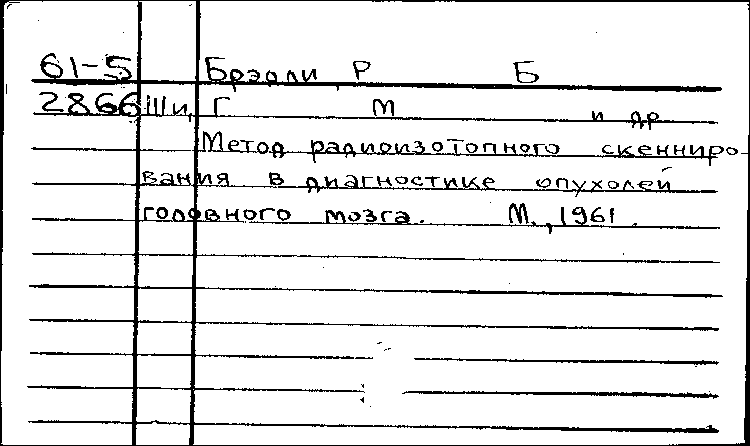 61-5 Брэдли, Р Б
2866 Ши, Г М и др
Метод радиоизотопного скенниро
вания в диагностике опухолей
головного мозга. М., 1961.